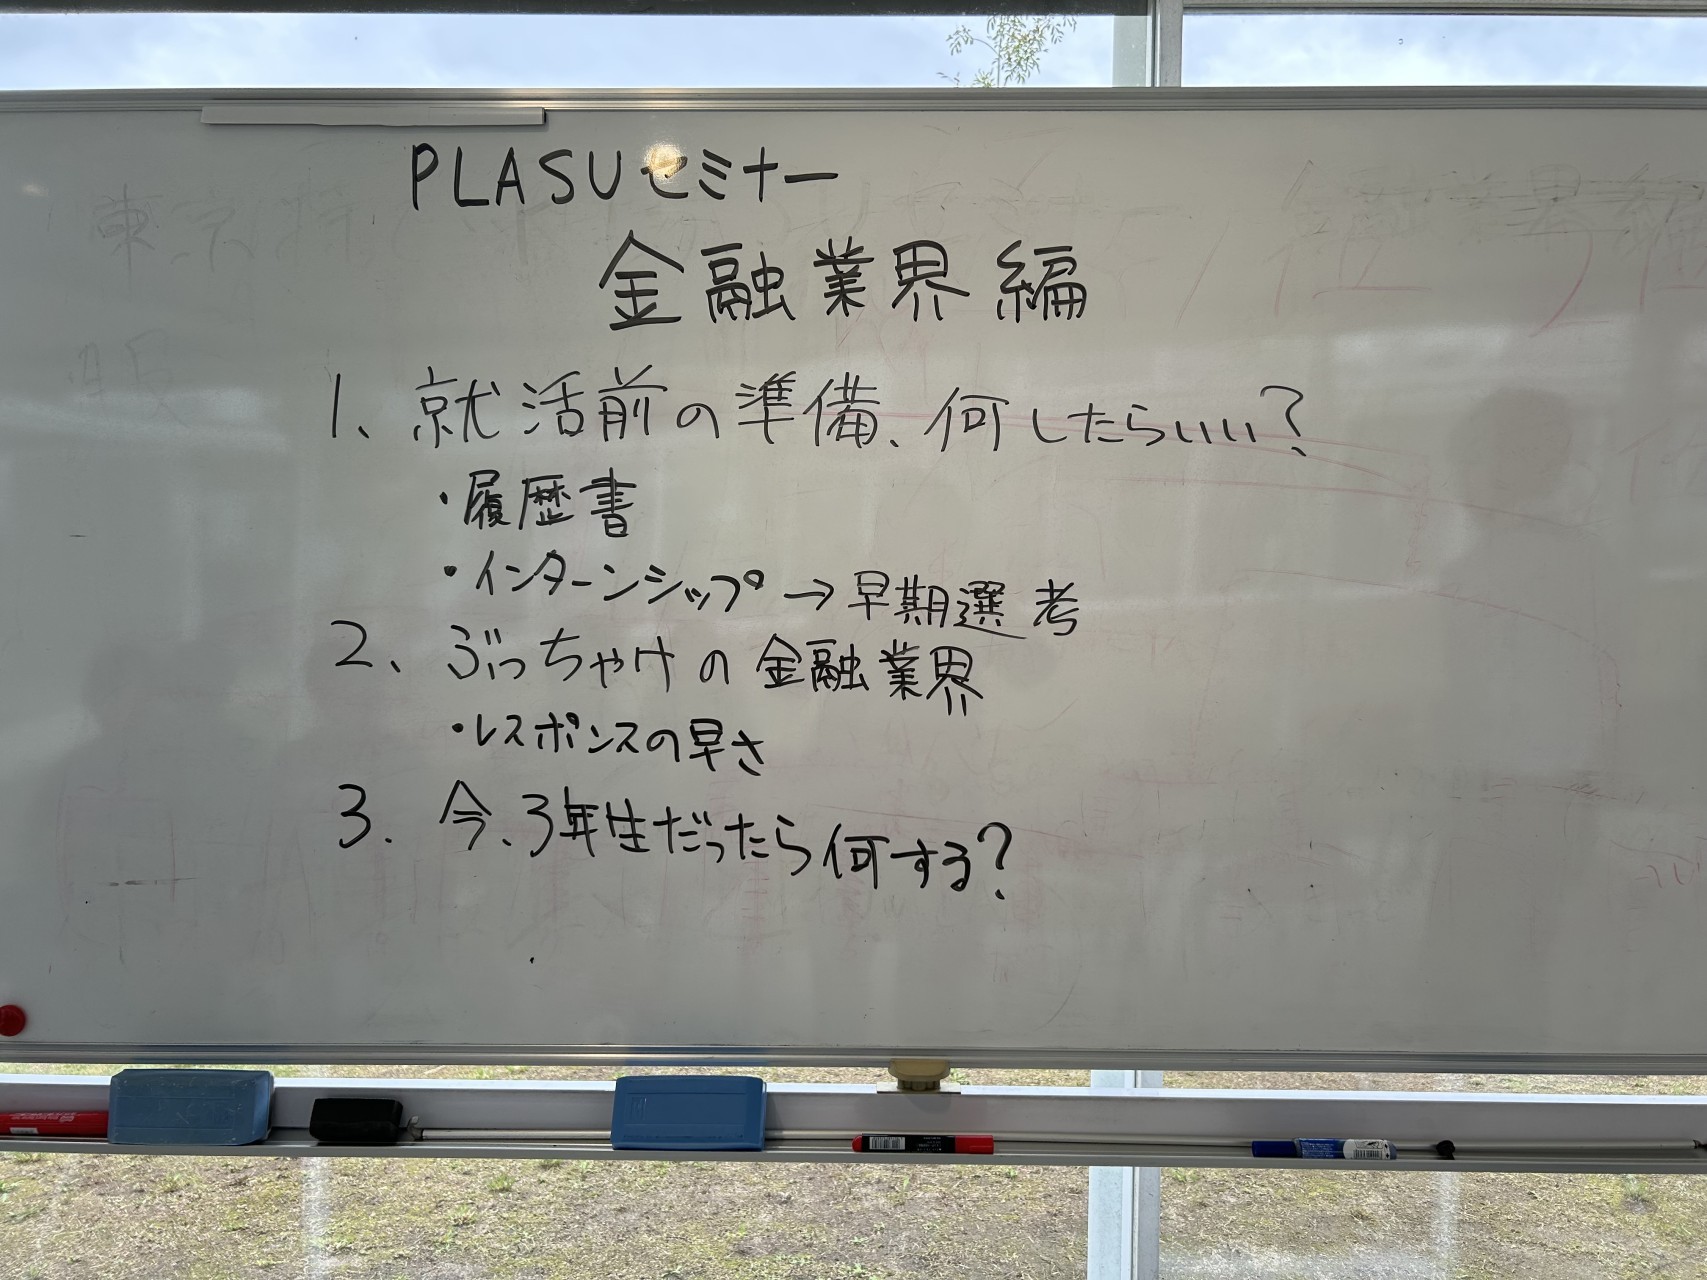 PLASUセミナー
金融業界編
1、就活前の準備、何したらいい?
・履歴書
・インターンシップ→早期選考
2、ぶっちゃけの金融業界
・レスポンスの早さ
3. 今、3年生だったら何する?